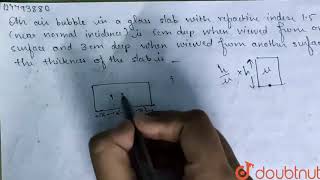 127793880
An air bubble in a glass slab with refractive index 1.5
(near normal incidence) is 5cm deep when viewed from on
surface and 3cm deep when viewed from another surfac
the thickness of the slab is _
h
μ
x h
μ
doubtnut